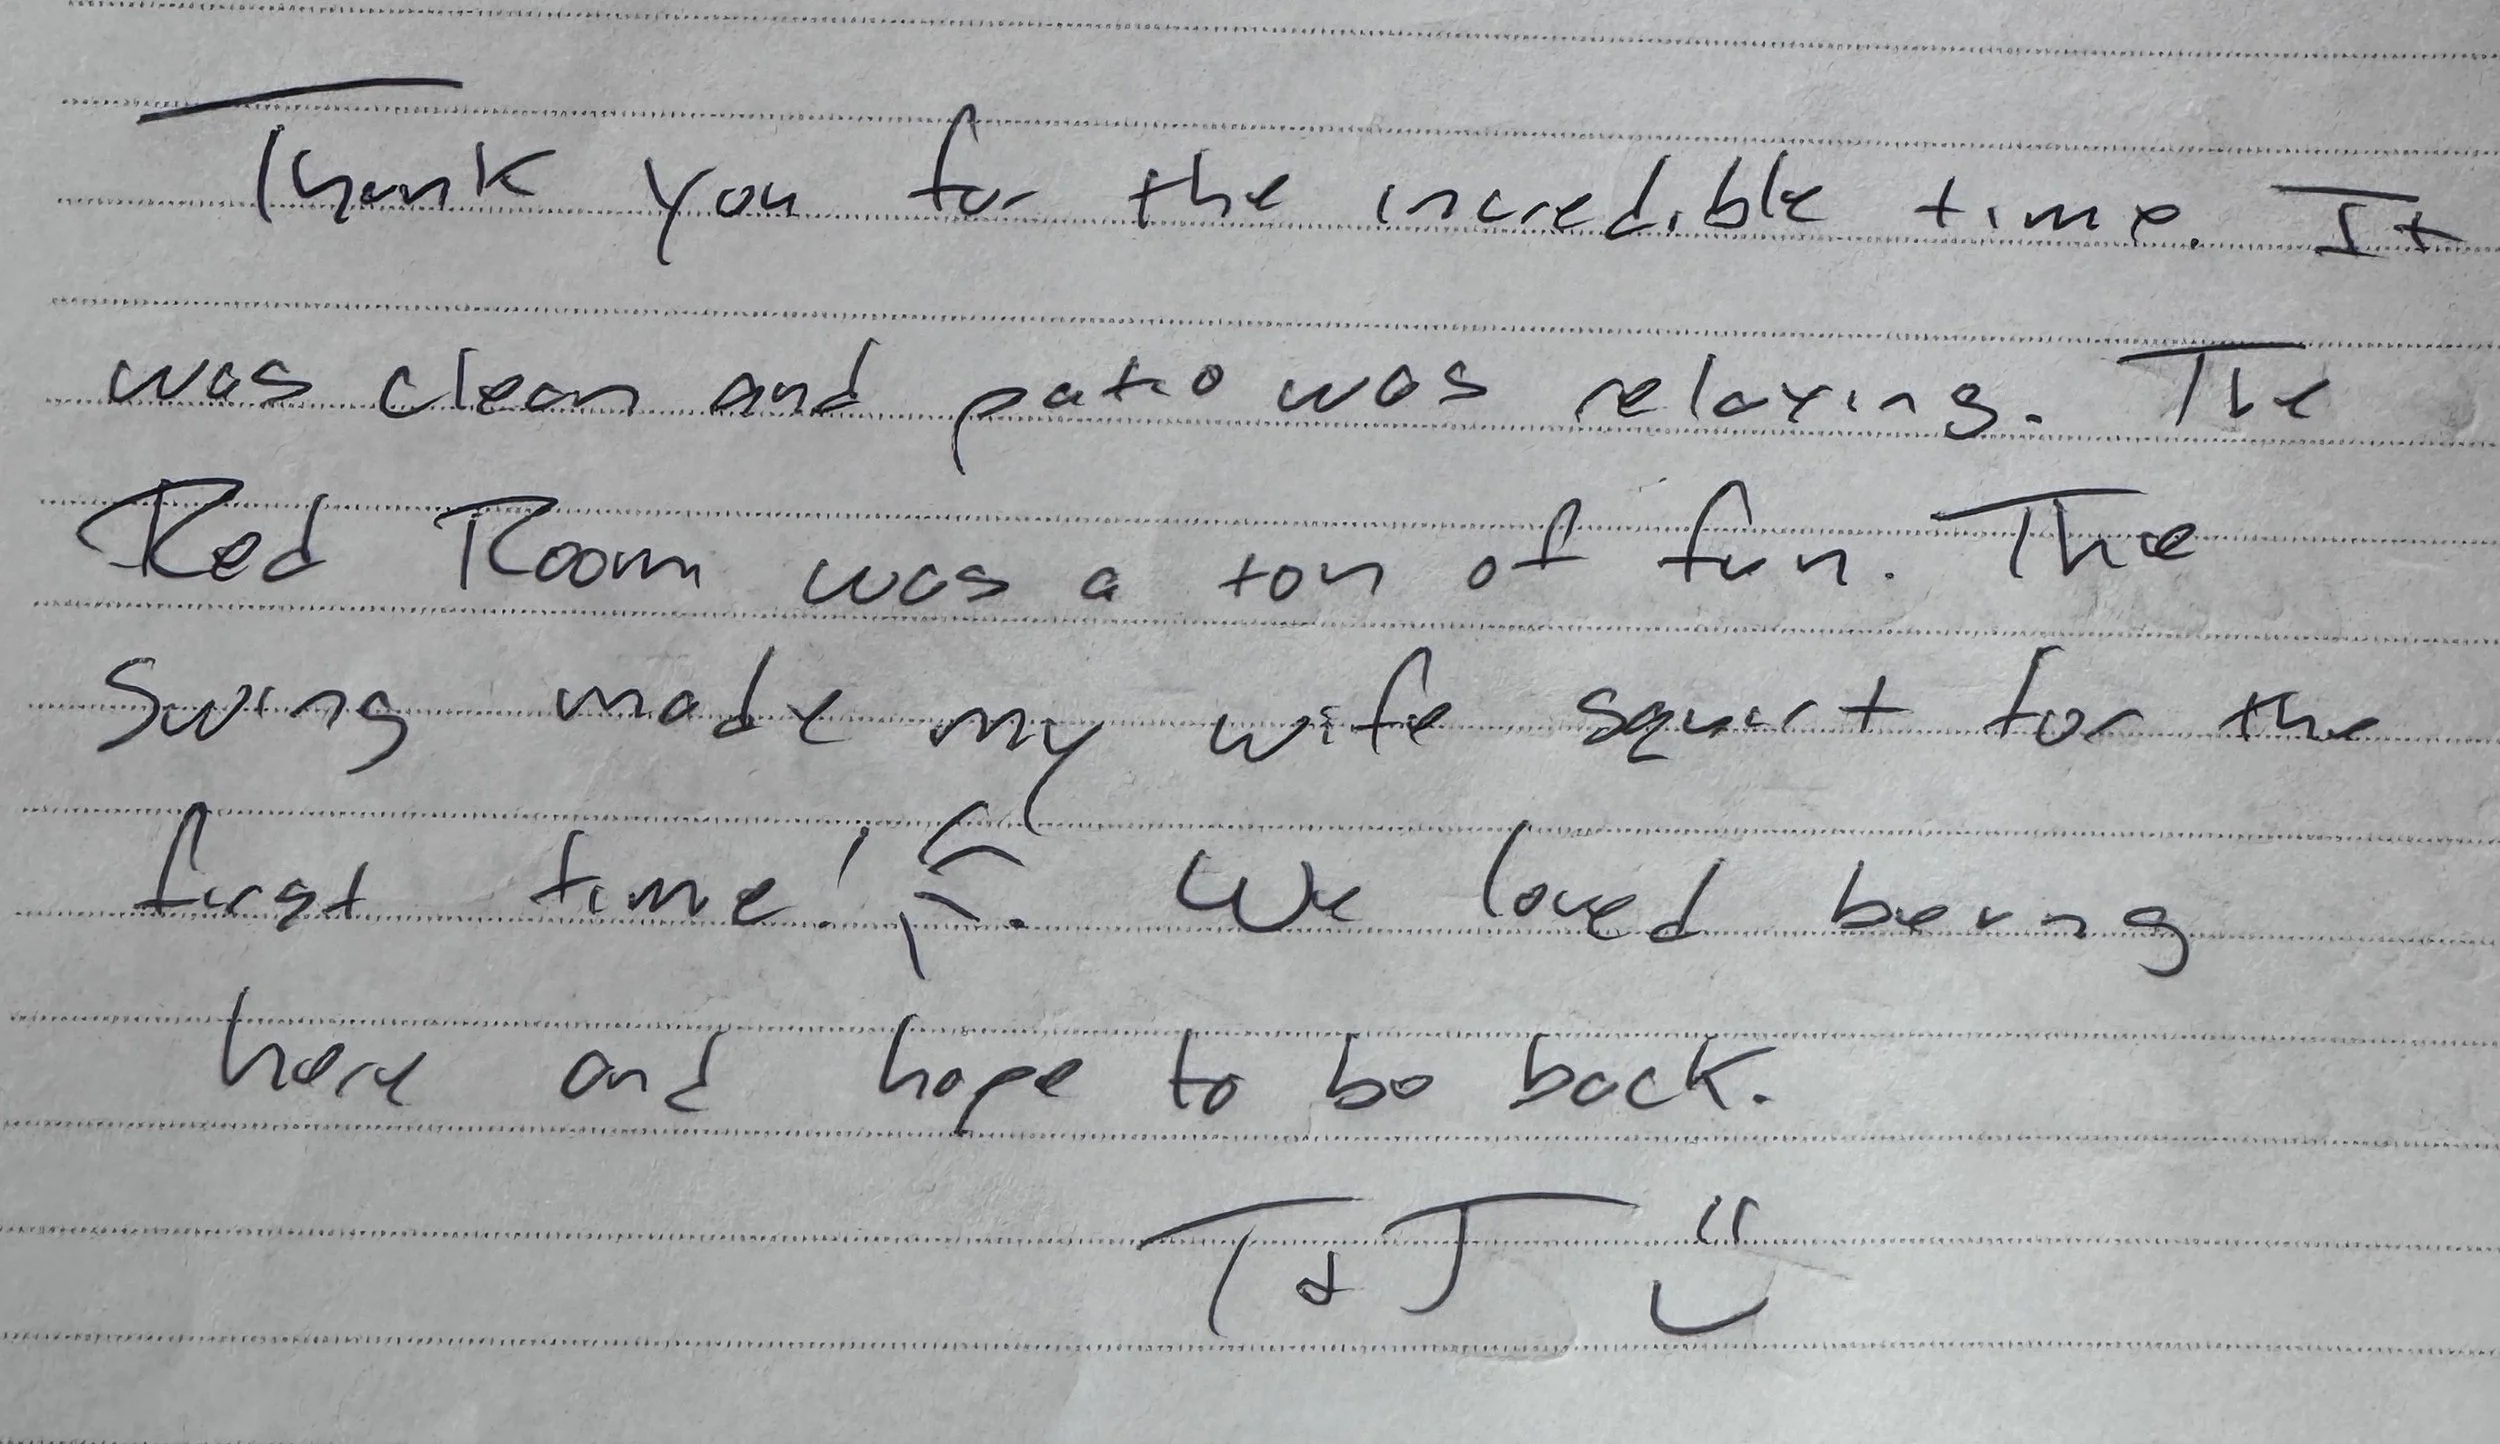 Thank you for the incredible time. It
was clean and patio was relaxing. The
Red Room was a ton of fun. The
Swing made my wife squirt for the
first time! We loved being
here and hope to be back.
T & J